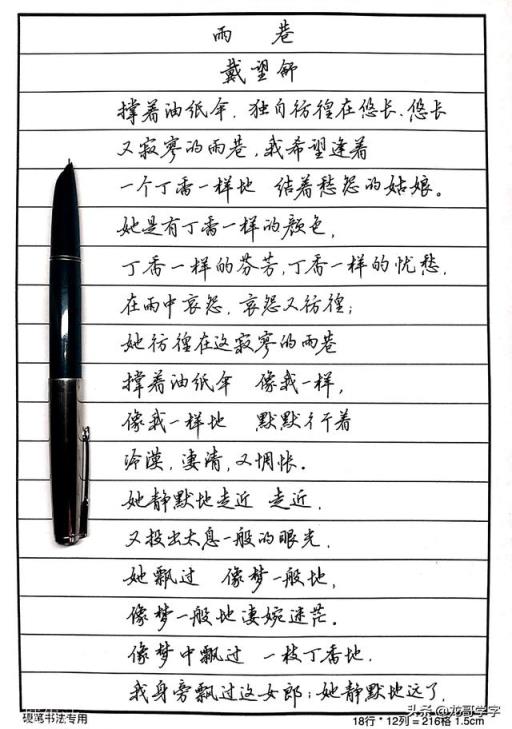 雨 巷
戴望舒
撑着油纸伞，独自彷徨在悠长、悠长
又寂寥的雨巷，我希望逢着
一个丁香一样地 结着愁怨的姑娘。
她是有丁香一样的颜色，
丁香一样的芬芳，丁香一样的忧愁，
在雨中哀怨，哀怨又彷徨；
她彷徨在这寂寥的雨巷
撑着油纸伞 像我一样，
像我一样地 默默彳亍着
冷漠，凄清，又惆怅。
她静默地走近 走近，
又投出太息一般的眼光，
她飘过 像梦一般地，
像梦一般地凄婉迷茫。
像梦中飘过 一枝丁香地，
我身旁飘过这女郎；她静默地远了
硬笔书法专用
18行 * 12列 = 216格 1.5cm
头条 @龙哥学字